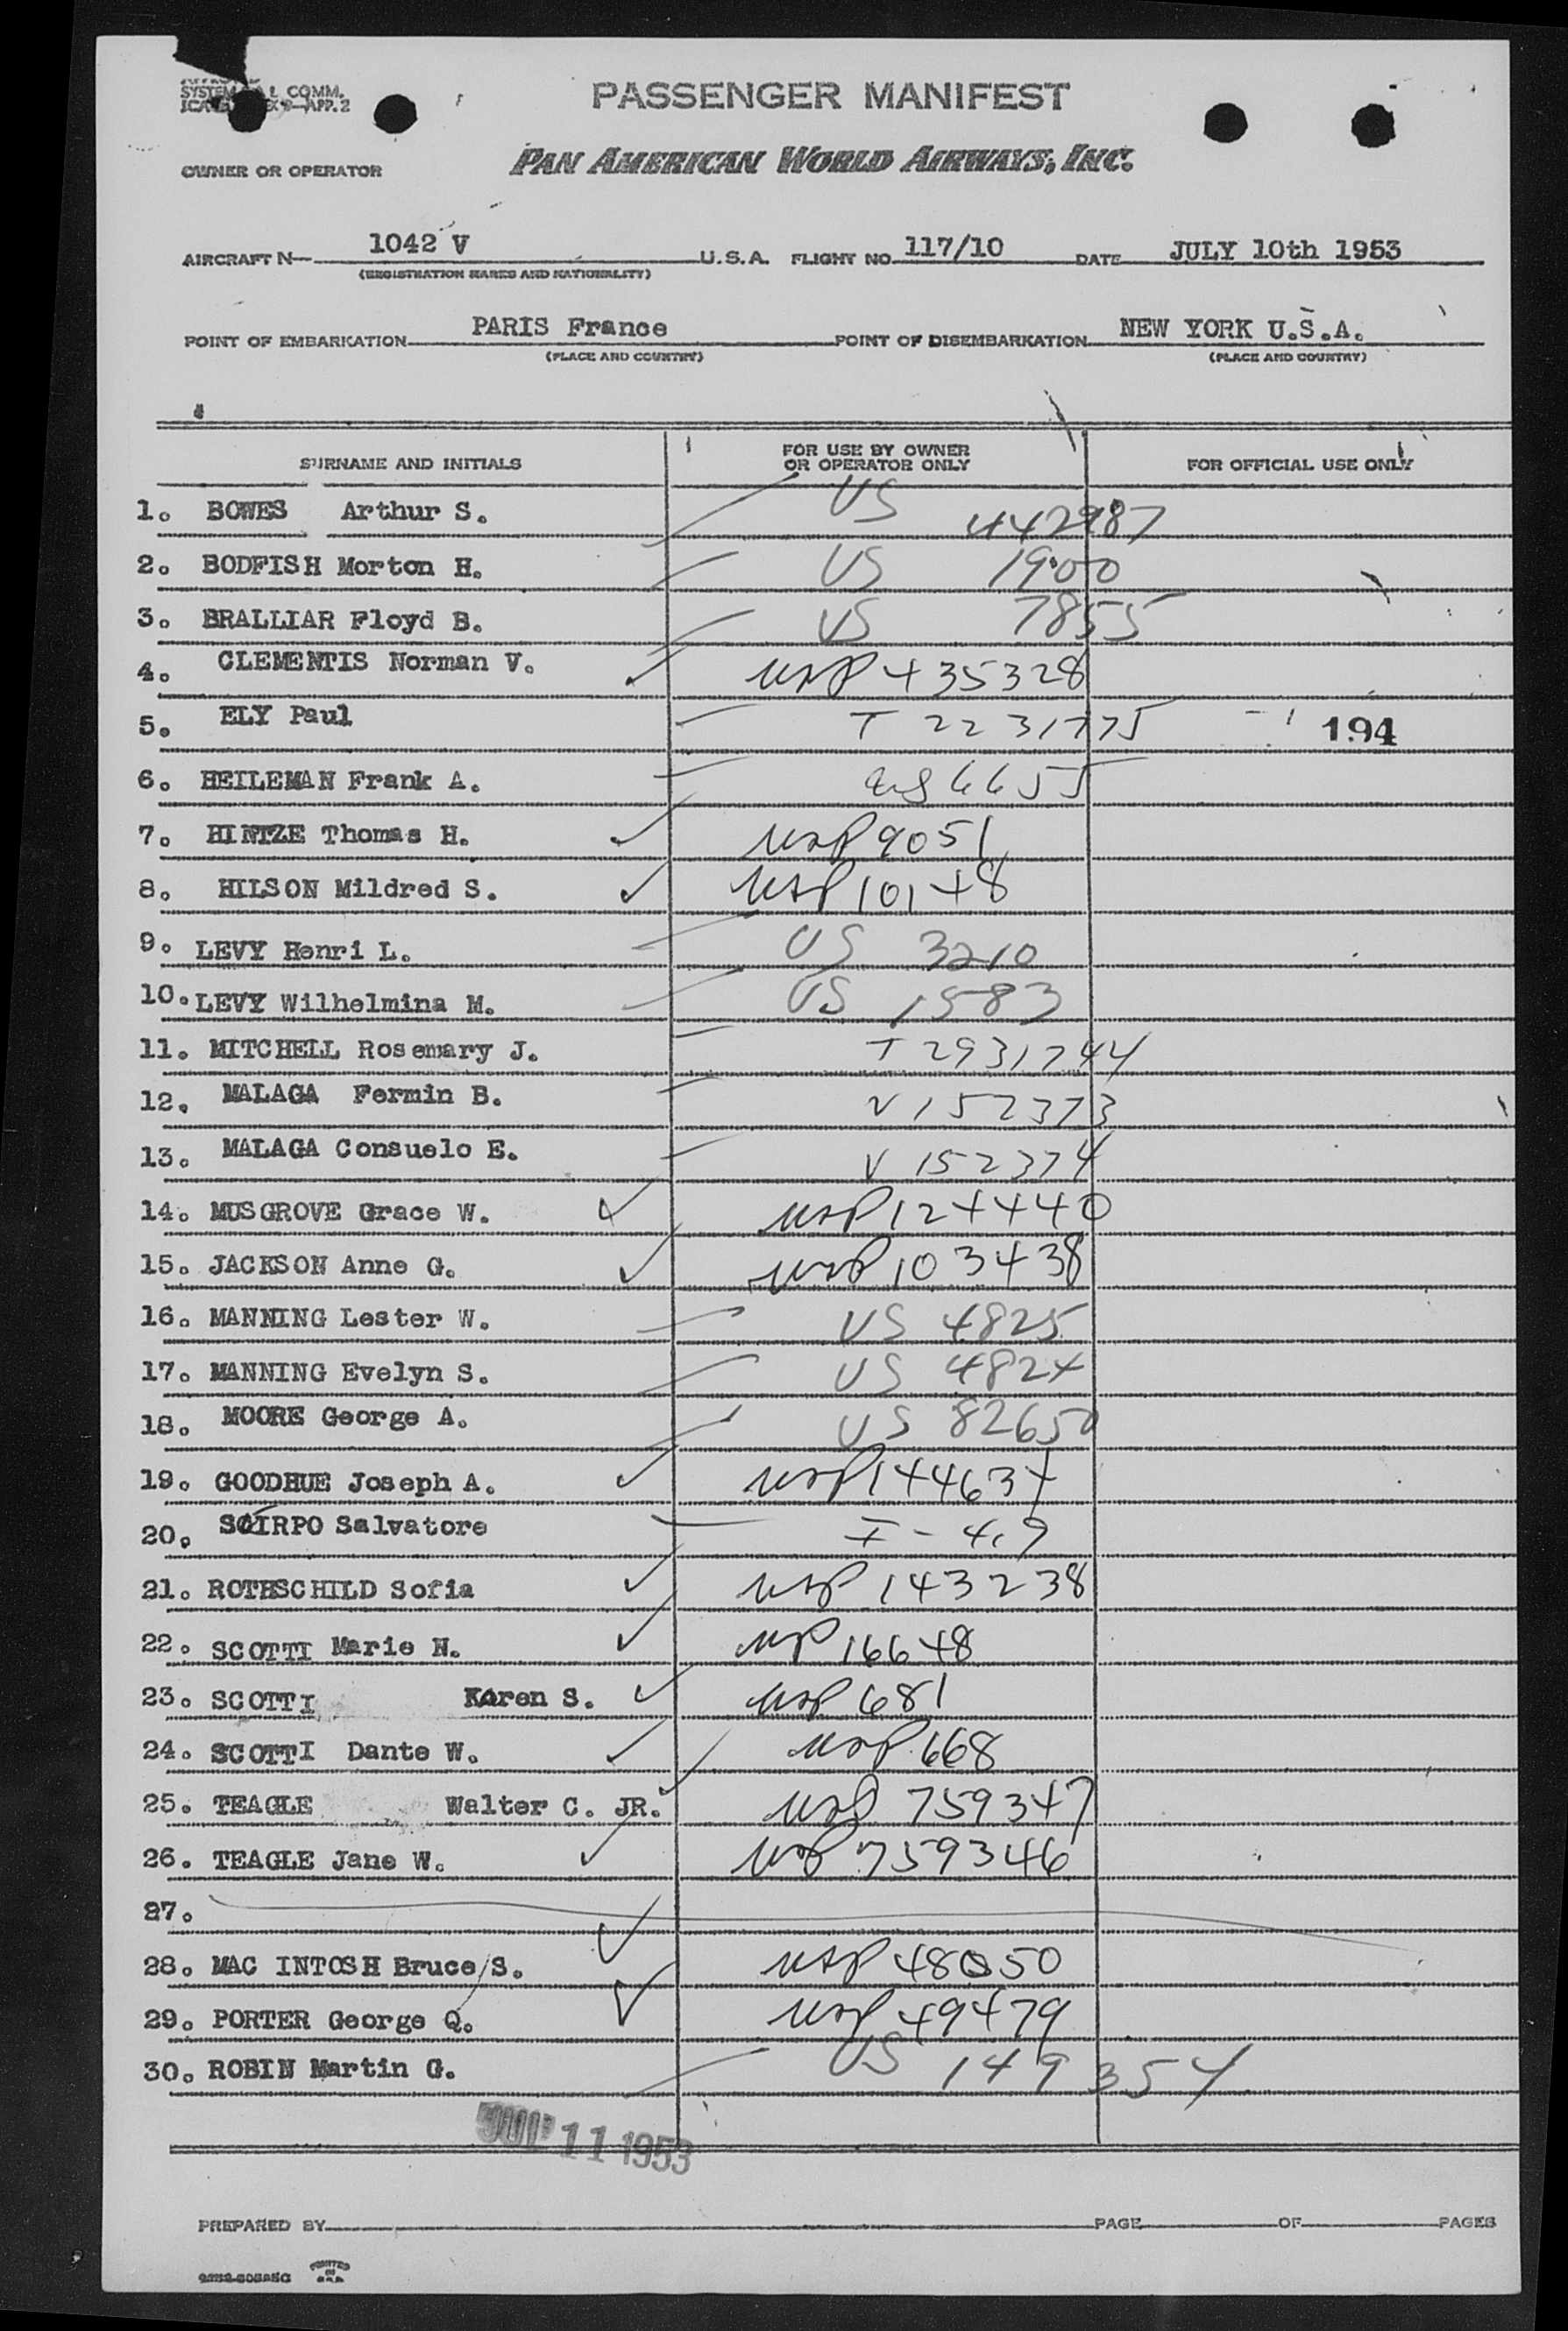 SYSTEM
COMM.
APP. 2
PASSENGER MANIFEST
OWNER OR OPERATOR PAN AMERICAN WORLD AIRWAYS, INC.
AIRCRAFT N- 1042 V U.S.A. FLIGHT NO. 117/10 DATE JULY 10th 1953
(REGISTRATION MARKS AND NATIONALITY)
POINT OF EMBARKATION PARIS France POINT OF DISEMBARKATION NEW YORK U.S.A.
(PLACE AND COUNTRY) (PLACE AND COUNTRY)
SURNAME AND INITIALS FOR USE BY OWNER OR OPERATOR ONLY FOR OFFICIAL USE ONLY
1. BOWES Arthur S. US 442987
2. BODFISH Morton H. US 1900
3. BRALLIAR Floyd B. US 7855
4. CLEMENTIS Norman V. USP 435328
5. ELY Paul T 2231775 194
6. HEILEMAN Frank A. 6655
7. HINTZE Thomas H. USP 9051
8. HILSON Mildred S. USP 10148
9. LEVY Henri L. US 3210
10. LEVY Wilhelmina M. US 1583
11. MITCHELL Rosemary J. T 2931744
12. MALAGA Fermin B. V 152373
13. MALAGA Consuelo E. V 152374
14. MUSGROVE Grace W. USP 124440
15. JACKSON Anne G. USP 103438
16. MANNING Lester W. US 4825
17. MANNING Evelyn S. US 4824
18. MOORE George A. US 82650
19. GOODHUE Joseph A. USP 144634
20. SCIRPO Salvatore I-4,9
21. ROTHSCHILD Sofia USP 143238
22. SCOTTI Marie N. USP 16648
23. SCOTTI Karen S. USP 681
24. SCOTTI Dante W. USP 668
25. TEAGLE Walter C. JR. USP 759347
26. TEAGLE Jane W. USP 759346
27.
28. MAC INTOSH Bruce S. USP 48050
29. PORTER George Q. USP 49479
30. ROBIN Martin G. US 149354
JUL 11 1953
PREPARED BY PAGE OF PAGES
PRINTED IN U.S.A.